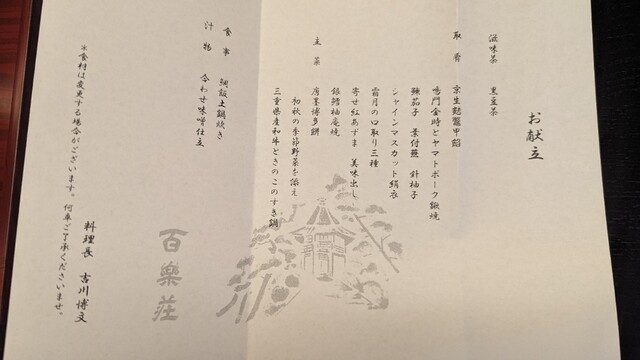 お献立
滋味茶　黒豆茶
取肴　京生麩鼈甲餡
鳴門金時とヤマトポーク鍬焼
鰊茄子　葉付蕪　針柚子
シャインマスカット絹衣
霜月の口取り三種
寄せ紅あずま　美味出し
銀鱈柚庵焼
唐墨博多餅
主菜　初秋の季節野菜を添え
三重県産和牛ときのこのすき鍋
食事　鯛飯土鍋炊き
汁物　合わせ味噌仕立
※食材は変更する場合がございます。何卒ご了承くださいませ。
料理長　古川博文
百樂荘